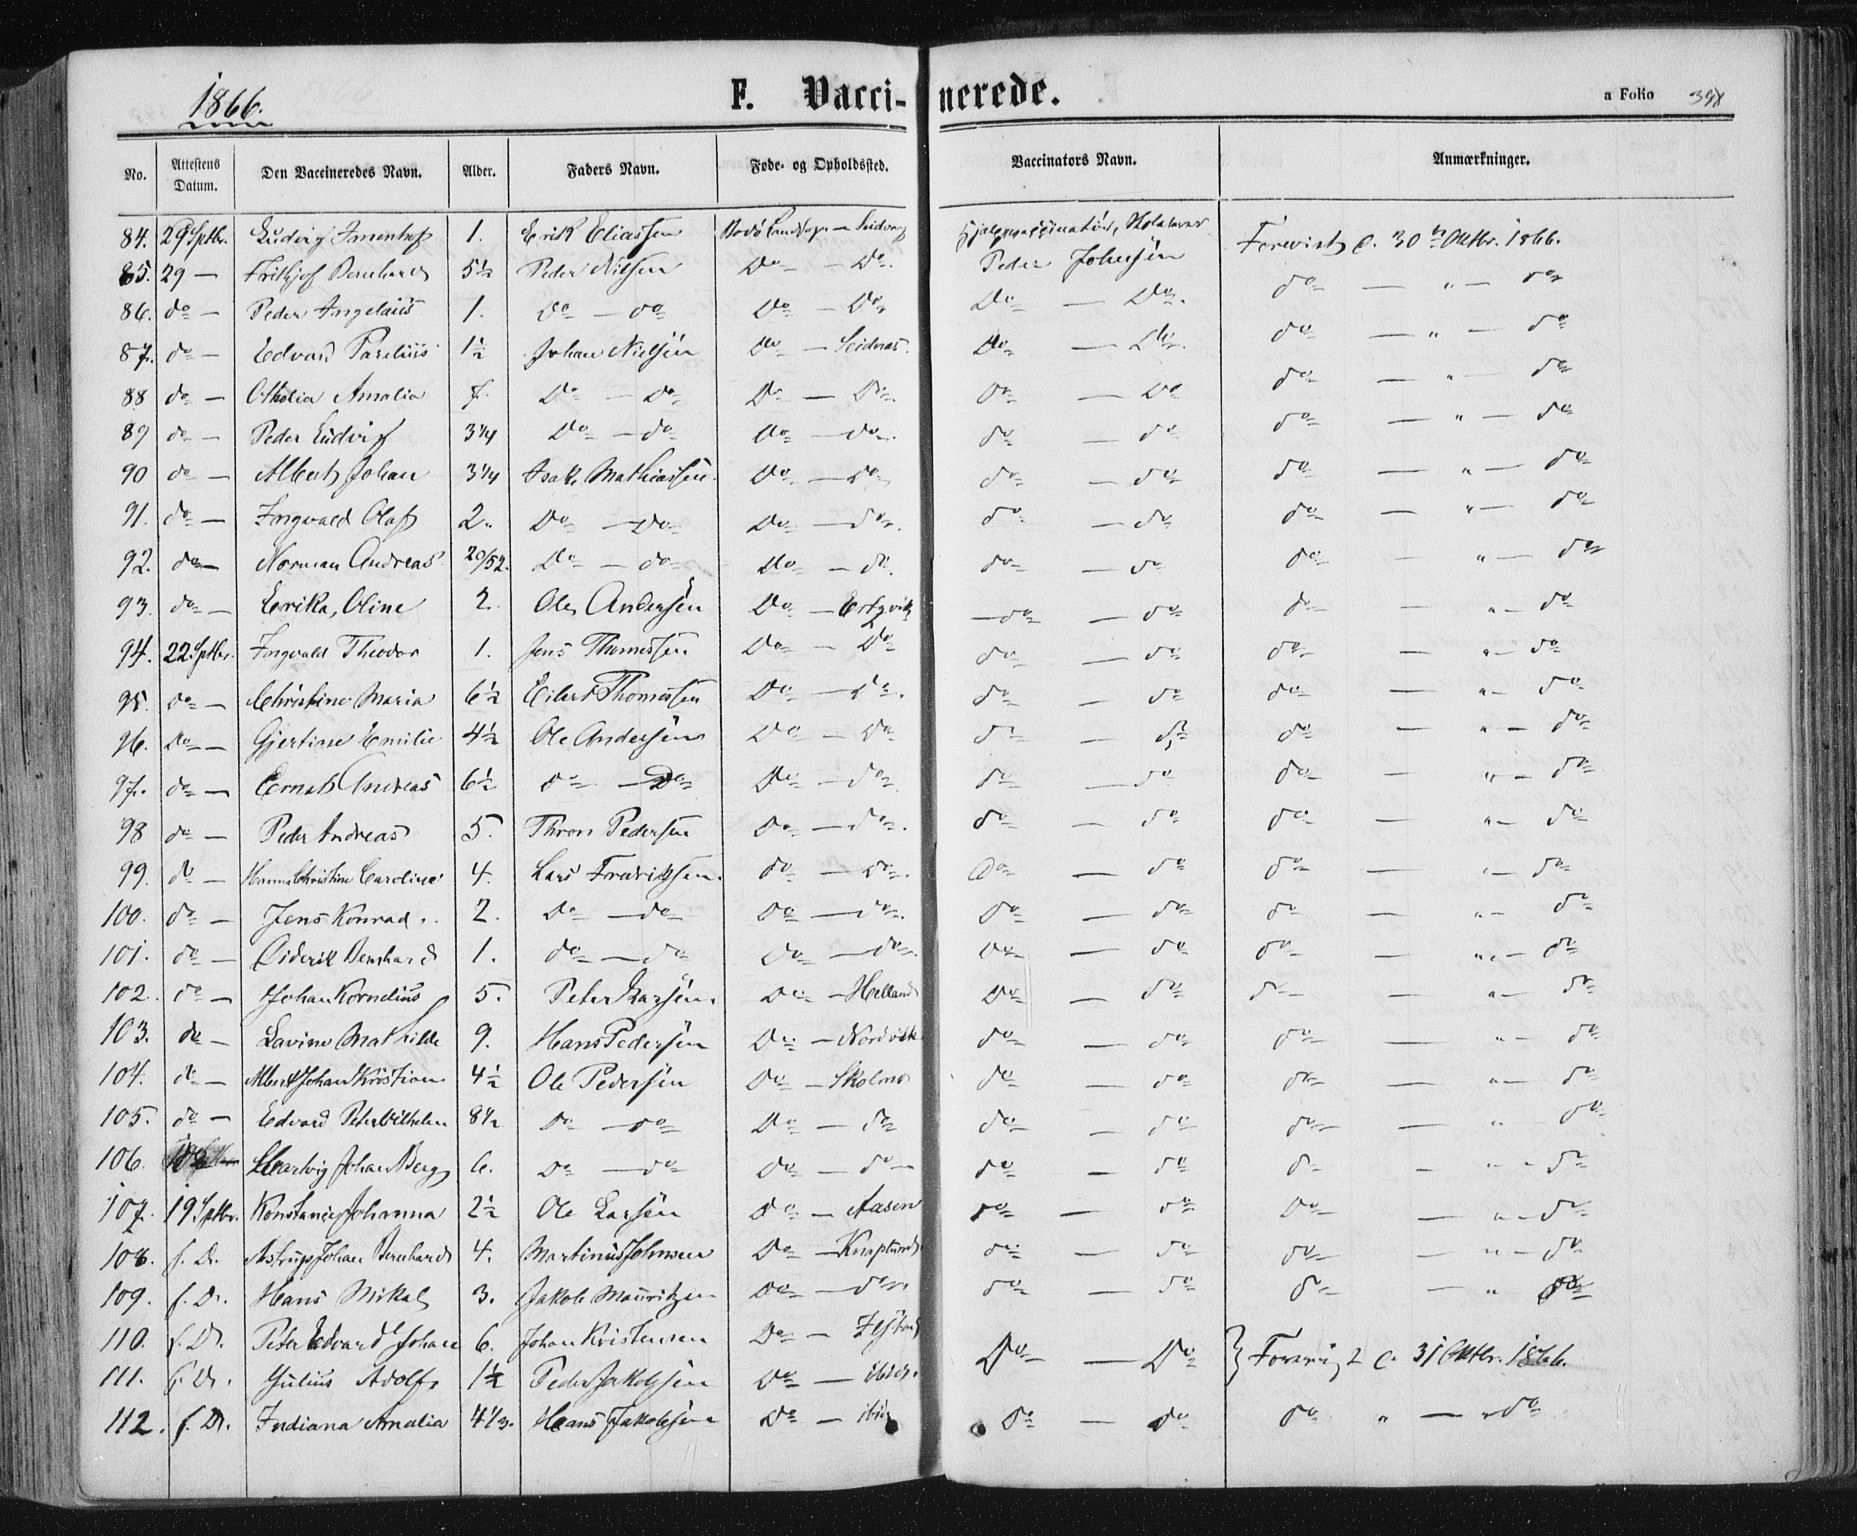 1866.
F. Vacci-nerede.
a Folio
No. Attestens Datum. Den Vaccineredes Navn. Alder. Faders Navn. Føde- og Opholdssted. Vaccinators Navn. Anmærkninger.
84. 29 Septbr. Ludvig 1. Erik Eliassen Bodø Landsogn — Hjælpevaccinatör, Forevist d. 30te Oktbr. 1866.
85. 29 — Frithjof Bernhard 5½ Peder Nilsen Do — Do. Peder Johnsen do — " — do
86. do — Peder Angelius 1. do — do Do — Do Do — Do. do — " — do
87. do — Edvard Parelius 1½ Johan Nielsen do — Do — Do. do — " — do
88 do — Othelia Amalia Do — Do Do — Do. Do — Do do — " — do
89 do — Peder Ludvig 3¼ Do — do Do — do. do — do do — " — do
90 do — Albert Johan 3¼ Isak Mathiassen Do — do do — do do — " — do
91. do — Ingvald Olaf 2. Do — Do Do — do. do — do do — " — do
92. do — Norman Andreas 20/52. Do — do Do — do. do — do do — " — do
93. do — Erika, Oline 2. Ole Andersen Do — do — do do — " — do
94. 22 Septbr. Ingvald Theodor 1. Jens Thomessen Do — Do do — do do — " — do
95. do — Christine Maria 6½ Eilert Thomessen Do — do. do — do do — " — do
96. Do — Gjertine Emilie 4½ Ole Andersen Do — do do — do do — " — do
97. do — Ernst Andreas 6½ do — Do Do — do do — do do — " — do
98 do — Peder Andreas 5. Thron Pedersen Do — do. do — do do — " — do
99. do — Hanna Christine Caroline 4. Lars Fredriksen. do — do. Do — do do — " — do
100. do — Jens Konrad. 2. Do — do Do — do. do — do do — " — do
101. do — Diderik Bernhard 1. do — do do — do. do — do do — " — do
102. do — Johan Kornelius 5. Peter Larsen. Do — Helland Do — do do — " — do
103. do — Lavine Mathilde 9. Hans Pedersen Do — Nordvik do — do do — " — do
104. do — Albert Johan Kristian 4½ Ole Pedersen Do — Skolmo do — do do — " — do
105. do — Edvard Peter Vilhelm 8½ do — do Do — do do — do do — " — do
106. Hartvig Johan Berg 6. Do — do do — do do — do do — " — do
107. 19 Septbr. Konstance Johanna 2½ Ole Larsen do — Aasen do — do Do — " — do
108. f. D. Astrup Johan Bernhard 4. Martinus Johnsen Do — Knaplund do — do do — " — do
109. f. D. Hans Mikal 3. Jakob Mauritzen Do — do do — do do — " — do
110. f. D. Peter Edvard Johan 6. Johan Kristensen Do — Do — Do } Forevist d. 31 Oktbr. 1866.
111. f. D. Julius Adolf 1½ Peder Jakobsen Do — ibid.
112. f. D. Indiana Amalia 4⅓. Hans Jakobsen Do — ibid do — do do " — " do